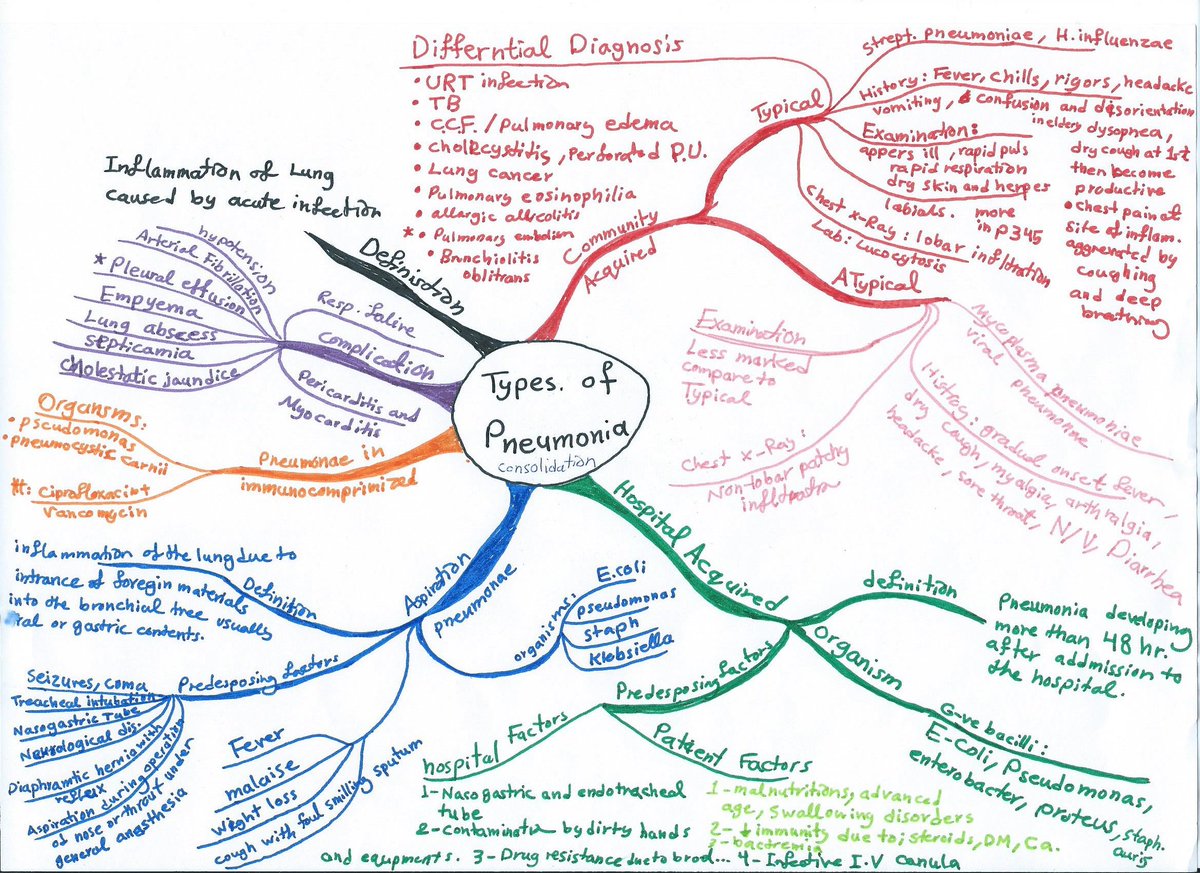 Types. of
Pneumonia
consolidation
Definistion
Inflammation of Lung
caused by acute infection
Community
Acquired
Typical
Strept. pneumoniae, H. influenzae
History: Fever, chills, rigors, headacke
vomiting, & confusion and disorientation
in eldery dysopnea,
dry cough at 1st
then become
productive
• chest pain at
site of inflam.
aggrerated by
coughing
and deep
breathing
Examination:
appers ill, rapid puls
rapid respiration
dry skin and herpes
labials. more
in P345
chest x-Ray: lobar infiltration
Lab: Lucocytosis
Differntial Diagnosis
• URT infection
• TB
• C.C.F. / Pulmonary edema
• cholecystitis, Perforated P.U.
• Lung cancer
• Pulmonary eosinophilia
• allargic allveolitis
* • Pulmonary embolism
• Bronchiolitis
oblitrans
ATypical
Mycoplasma pneumoniae
viral pneumonne
Histroy: gradual onset fever,
dry cough, myalgia, arthralgia,
headacke, sore throat, N/V, Diarrhea
Examination
Less marked
compare to
Typical
Chest x-Ray:
Non-lobar patchy
infiltrastra
Hospital Acquired
definition
Pneumonia developing
more than 48 hr.
after addmission to
the hospital.
organism
G-ve bacilli:
E-Coli, Pseudomonas,
enterobacter, proteus, staph.
auris
Predesposing factors
hospital Factors
1- Nasogastric and endotracheal
tube
2- contaminatn by dirty hands
and equpments. 3- Drug resistance due to brod... 4- Infective I.V canula
Patient Factors
1- malnutritions, advanced
age, swallowing disorders
2- ↓ immunity due to; steroids, DM, Ca.
3- bactremia
Aspiration
pneumonae
Definition
inflammation of the lung due to
intrance of foregin materials
into the bronchial tree usually
ral or gastric contents.
organisms:
E.coli
pseudomonas
staph
Klebsiella
Predesposing factors
Seizures, coma
Treacheal intubation
Nasogastric Tube
Neurological dis.
Diaphramtic hernia with
reflux
Aspiration during operation
of nose or throat under
general anasthesia
Fever
malaise
wight loss
cough with foul smilling sputum
Pneumonae in
immunocomprimized
Organsms:
• pseudomonas
• pneumocystic Carnii
ttt: Ciprofloxacin +
Vancomycin
Complication
Resp. falire
hypotension
Arterial Fibrillation
* Pleural effusion
Empyema
Lung abscess
septicamia
cholestatic jaundice
Pericarditis and
Myocarditis